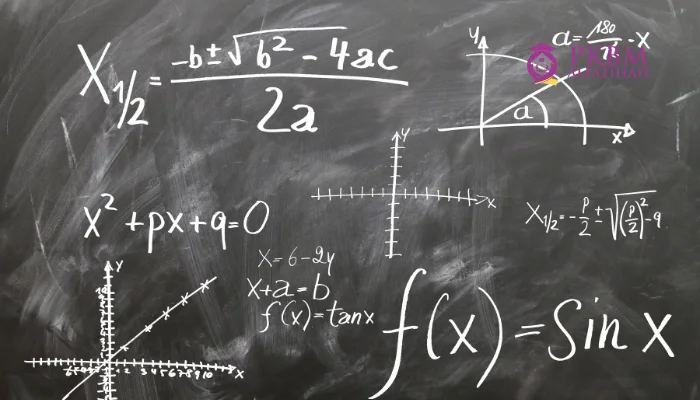 X₁/₂ = (-b ± √(b² - 4ac)) / 2a
a = 180/π · x
PKBM
y
a
x
y
x
x² + px + q = 0
X₁/₂ = -p/2 ± √((p/2)² - q)
x = 6 - 2y
x + a = b
f(x) = tan x
f(x) = Sin x
y
x